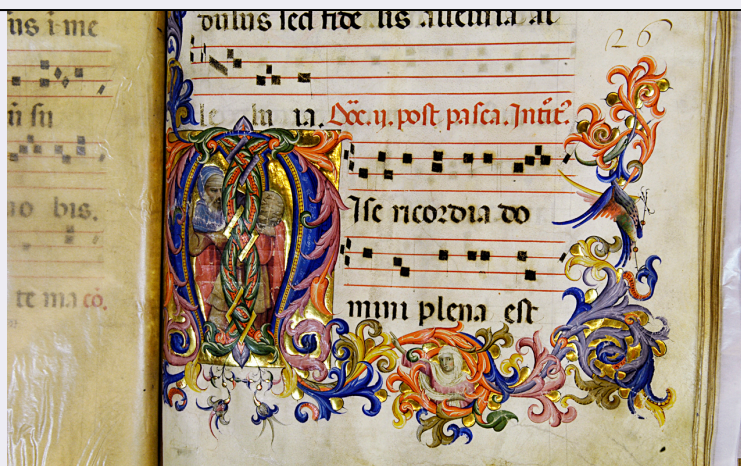 us i me
ū su
no bis.
te ma cō.
sed fide lis alleluia al
26
le lu ia. Dōc. ij. post pasca. Introit.
MIse ricordia do
mini plena est